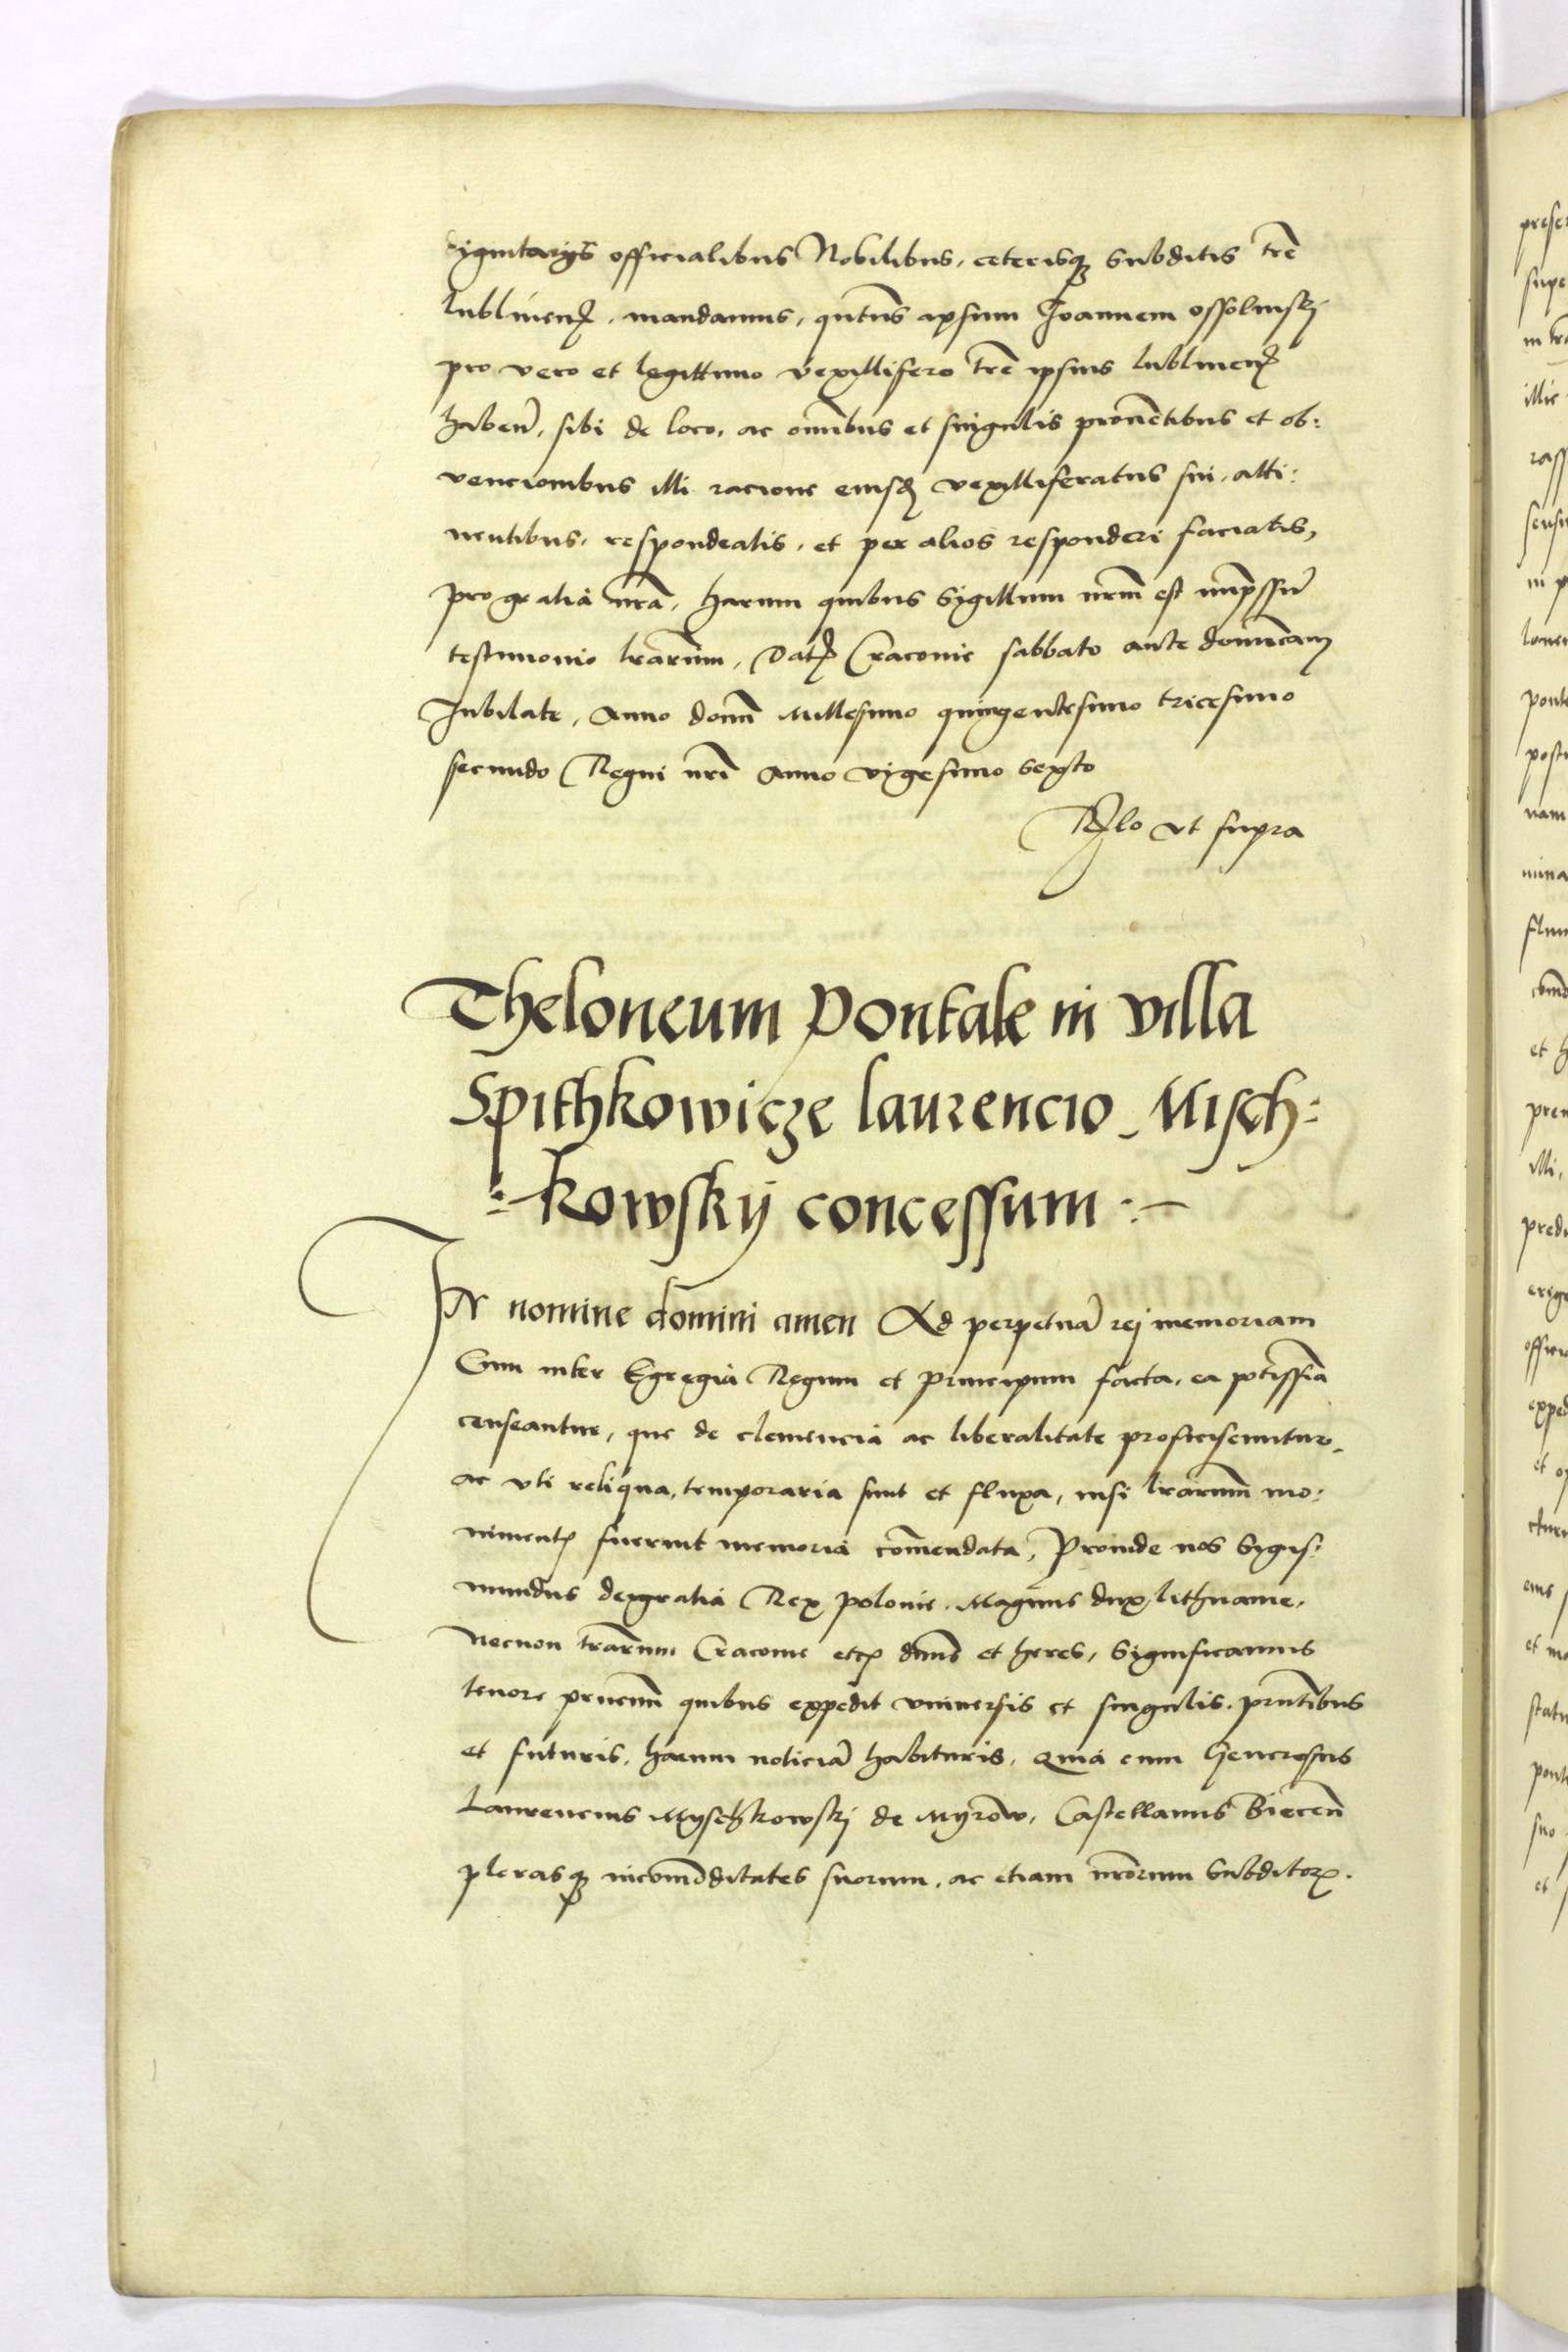 dignitarijs officialibus Nobilibus, ceterisq subditis trē
lublinen, mandamus, qntus ipsum Joannem ossolinskj
pro vero et legittimo vexillifero trē ipsius lublinen
haben, sibi de loco, ac omībus et singulis prouētibus et ob:
vencionibus illi racione eiusd vexilliferatus sui, atti:
nentibus, respondeatis, et per alios responderi faciatis,
pro gratia nrā, harum quibus sigillum nrm̄ est imprssū
testimonio lrārum, Dat Cracouie sabbato ante domīcam
Jubilate, Anno domī Millesimo quingentesimo tricesimo
secundo Regni nrī Anno vigesimo sexto
Rlo vt supra
Theloneum pontale in villa
Spithkowicze laurencio Misch:
:kowskij concessum :-
IN nomine domini amen Ad perpetuā rej memoriam
Cum inter Egregia Regum et principum facta, ea potissīa
censeantur, que de clemencia ac liberalitate proficiscuntur,
ac vti reliqua, temporaria sunt et fluxa, nisi lrārum mo:
niment fuerint memoria com̄endata, Proinde nos Sigis:
mundus dei gratia Rex polonie, Magnus dux lithuanie,
Necnon trārum Cracouie etc dn̄s et heres, Significamus
tenore prnciū quibus expedit vniuersis et singulis, prntibus
et futuris, harum noticiā habituris, Quia cum Generosus
Laurencius Myschkowskj de Myrow, Castellanus Biecen̄
plerasq incom̄oditates suorum, ac etiam nrōrum subditor